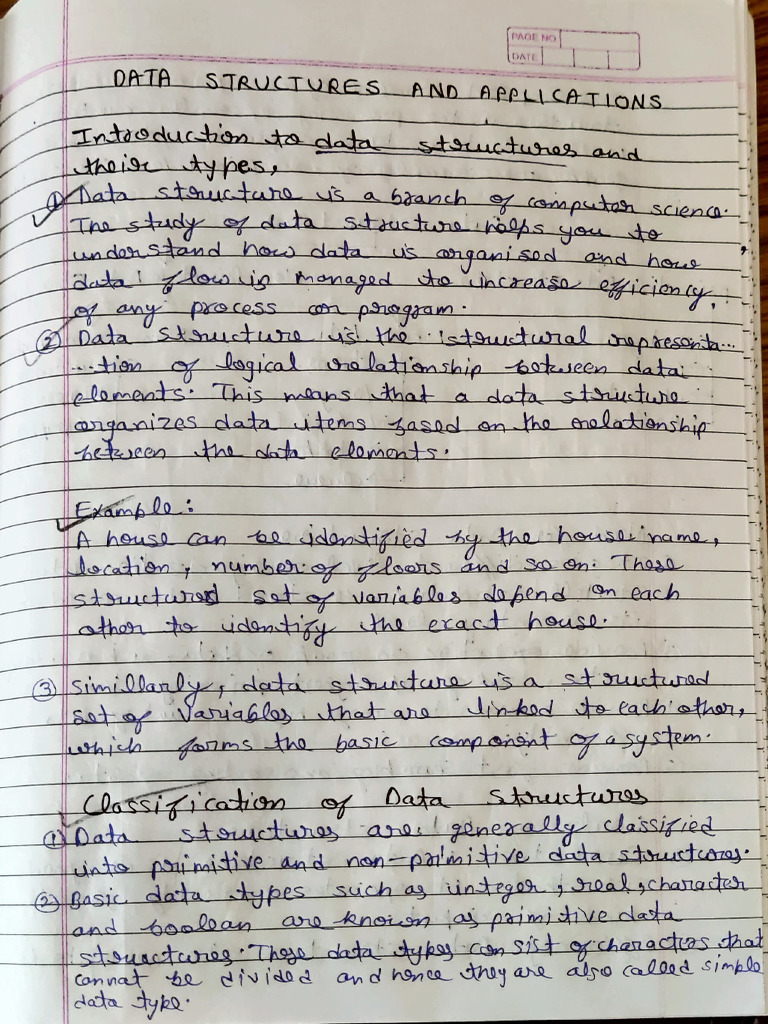 PAGE NO
DATE
DATA STRUCTURES AND APPLICATIONS
Introduction to data structures and
their types,
① Data structure is a branch of computer science.
The study of data structure helps you to
understand how data is organised and how
data flow is managed to increase efficiency,
of any process or program.
② Data structure is the structural representa...
...tion of logical relationship between data
elements. This means that a data structure
organizes data items based on the relationship
between the data elements.
Example:
A house can be identified by the house name,
location, number of floors and so on. These
structured set of variables depend on each
other to identify the exact house.
③ Simillarly, data structure is a structured
set of variables that are linked to each other,
which forms the basic component of a system.
Classification of Data Structures
① Data structures are generally classified
into primitive and non-primitive data structures.
② Basic data types such as integer, real, character
and boolean are known as primitive data
structures. These data types consist of characters that
cannat be divided and hence they are also called simple
data type.